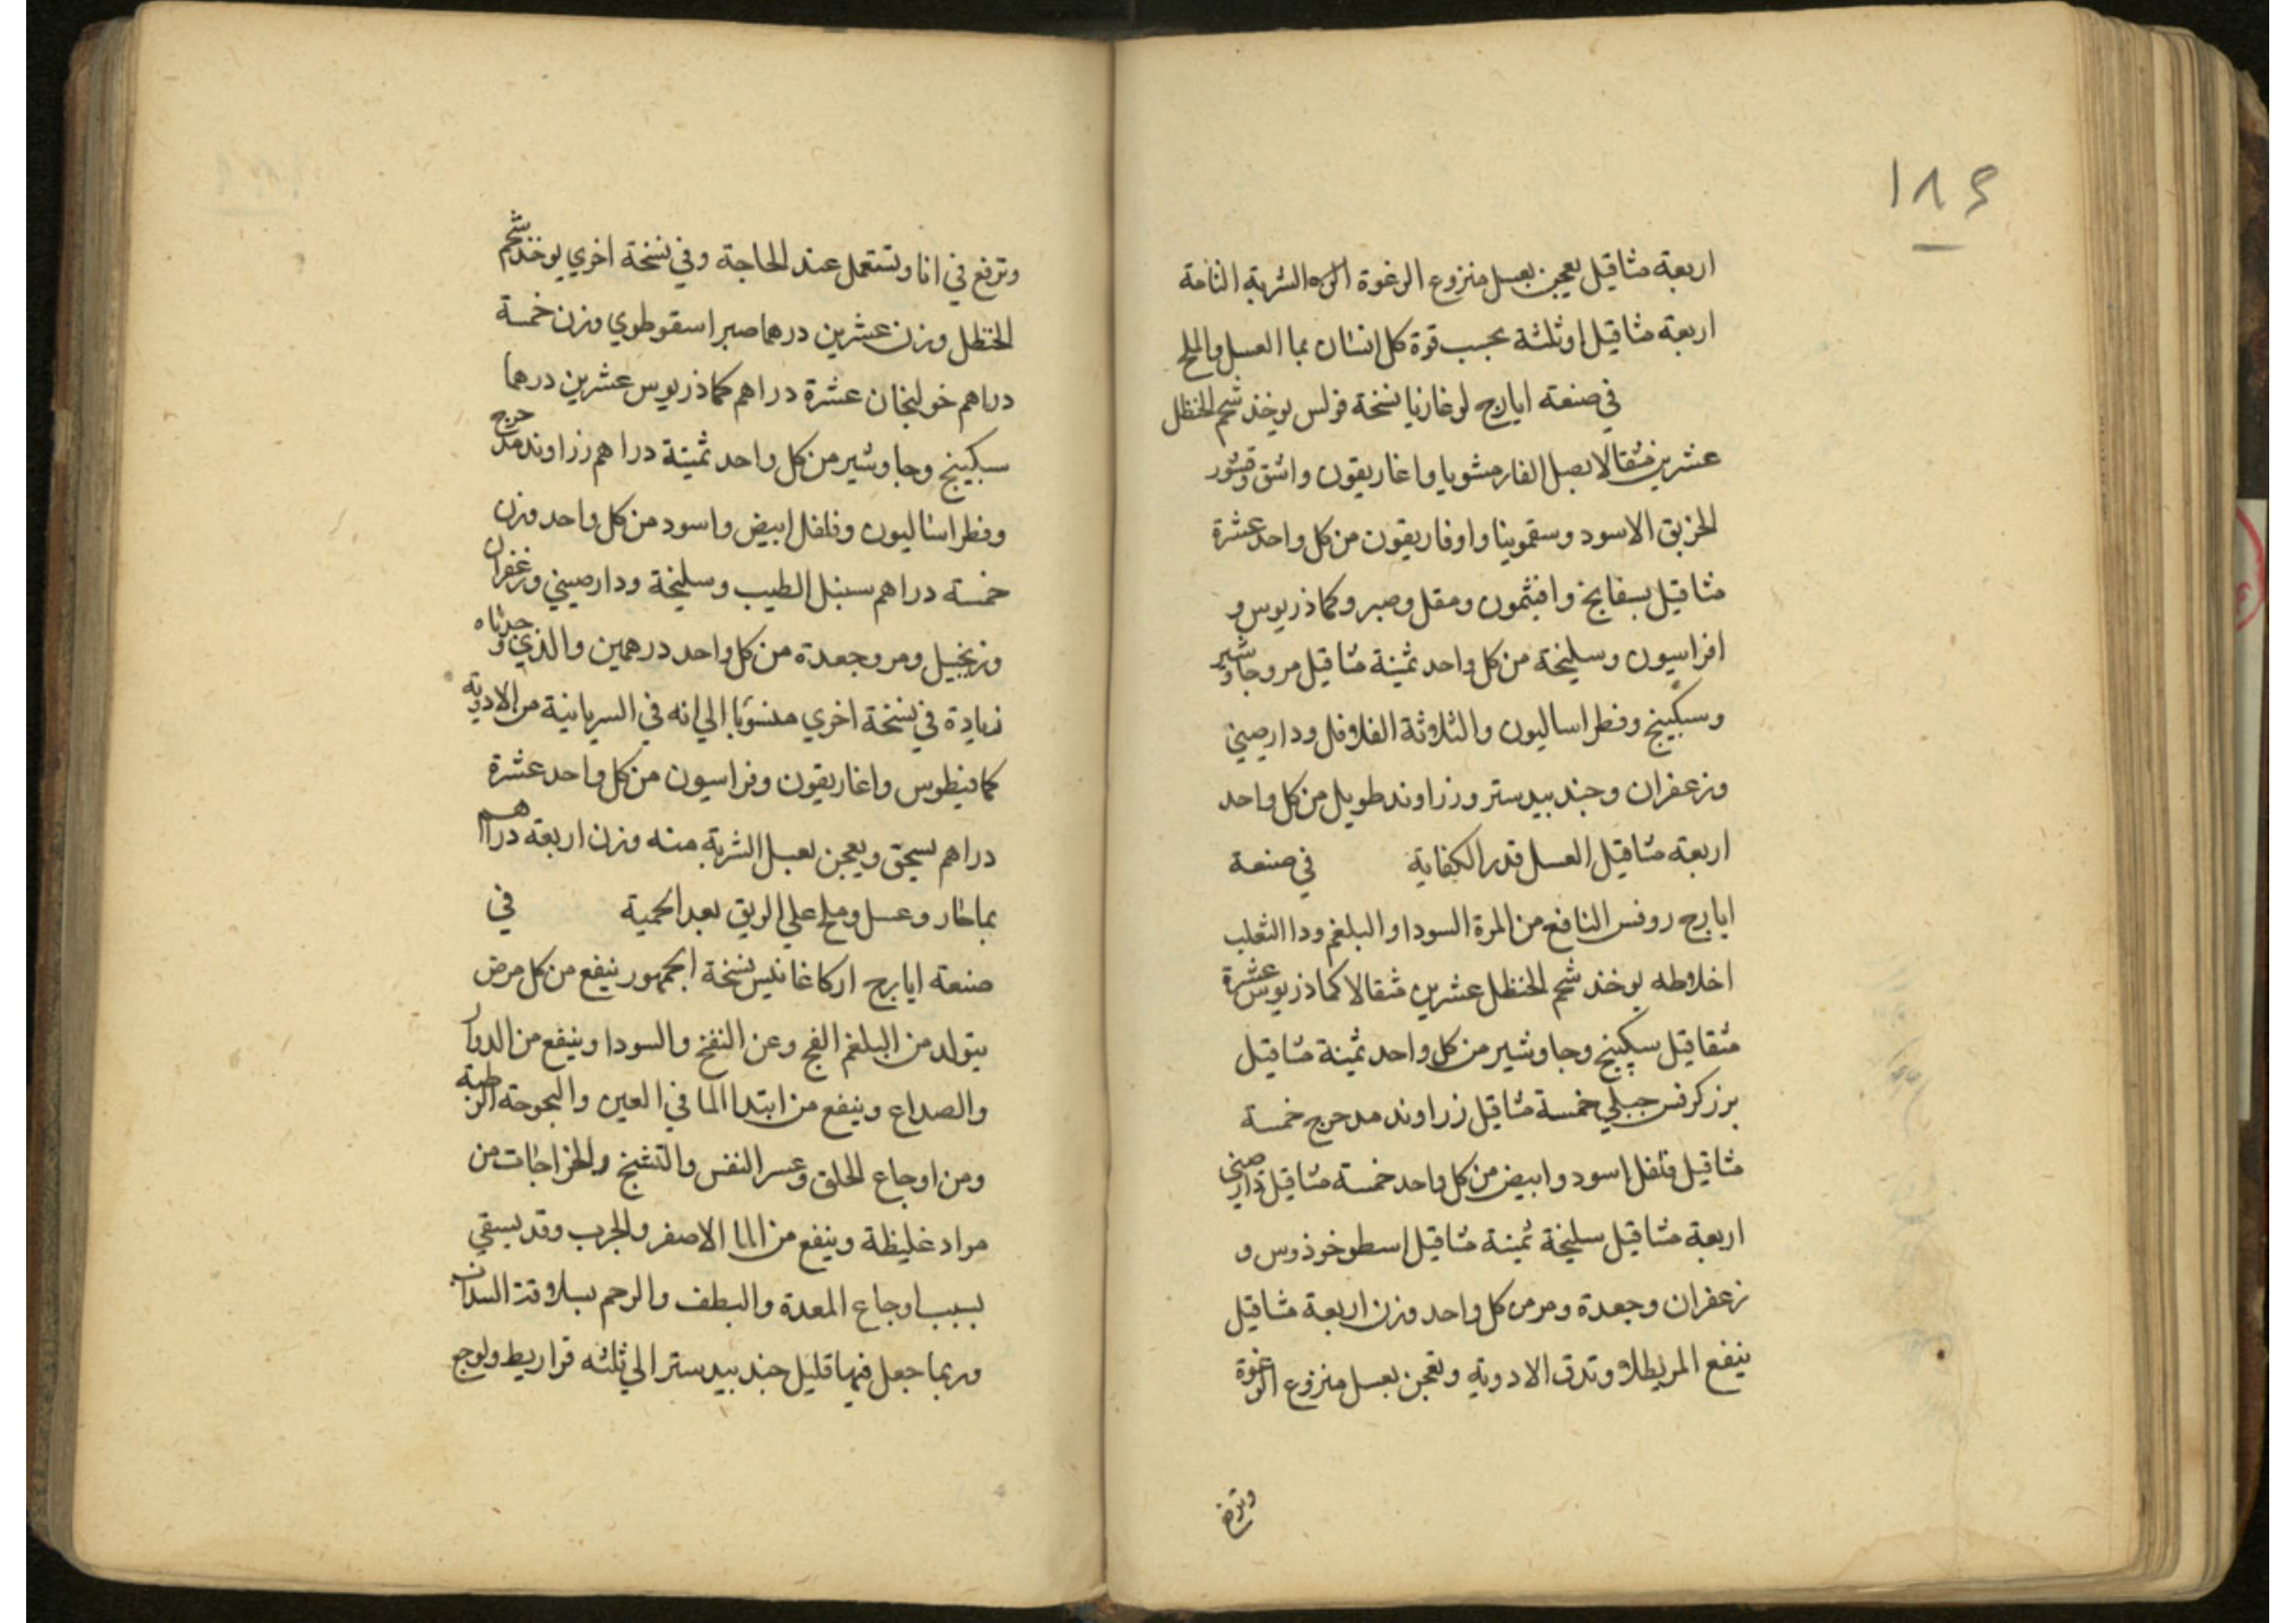 ١٨٤
اربعة مثاقيل يعجن بعسل منزوع الرغوة الشربة التامة
اربعة مثاقيل اوثلثة بحسب قوة كل انسان بما العسل والملح
في صنعة ايارج لوغاريا نسخة فولس يوخذ شحم الحنظل
عشرين مثقالا بصل الفار مشويا واغاريقون واشق وقشور
الخربق الاسود وسقمونيا واوفاريقون من كل واحد عشرة
مثاقيل بسفايج وافيثمون ومقل وصبر وكماذريوس و
افراسيون وسليخة من كل واحد ثمنية مثاقيل مر وجاوشير
وسكبينج وفطراساليون والثلاوثة الفلافل ودارصيني
وزعفران وجندبيدستر وزراوند طويل من كل واحد
اربعة مثاقيل العسل قدر الكفاية في صنعة
ايارج روفس النافع من المرة السودا والبلغم ودا الثعلب
اخلاطه يوخذ شحم الحنظل عشرين مثقالا كماذريوس عشرة
مثقاقيل سكبينج وجاوشير من كل واحد ثمنية مثاقيل
بزر كرفس جبلي خمسة مثاقيل زراوند مدحرج خمسة
مثاقيل فلفل اسود وابيض من كل واحد خمسة مثاقيل دارصيني
اربعة مثاقيل سليخة ثمنية مثاقيل اسطوخوذوس و
زعفران وجعدة ومر من كل واحد وزن اربعة مثاقيل
ينقع المر بطلا وتدق الادوية وتعجن بعسل منزوع الرغوة
وترفع
وترفع في انا وتستعمل عند الحاجة وفي نسخة اخري يوخذ شحم
الحنظل وزن عشرين درهما صبر اسقوطوي وزن خمسة
دراهم خولنجان عشرة دراهم كماذريوس عشرين درهما
سكبينج وجاوشير من كل واحد ثمنية دراهم زراوند مدحرج
وفطراساليون وفلفل ابيض واسود من كل واحد وزن
خمسة دراهم سنبل الطيب وسليخة ودارصيني وزعفران
وزنجبيل ومر وجعدة من كل واحد درهمين والذي وجدناه
زيادة في نسخة اخري منسوبا الي انه في السريانية من الادوية
كمافيطوس واغاريقون وفراسيون من كل واحد عشرة
دراهم يسحق ويعجن بعسل الشربة منه وزن اربعة دراهم
بما حار وعسل وملح علي الريق بعد الحمية في
صنعة ايارج اركاغانيس نسخة الجمهور ينفع من كل مرض
يتولد من البلغم الفج وعن النفخ والسودا وينفع من الدوار
والصداع وينفع من ابتدا الما في العين والبحوحة الرطبة
ومن اوجاع الحلق وعسر النفس والتشنج والخراجات من
مواد غليظة وينفع من الما الاصفر والجرب وقد يسقي
بسبب اوجاع المعدة والبطف والرحم بسلاقة السداب
وربما جعل فيها قليل جندبيدستر الي ثلثه قراريط ولوجع